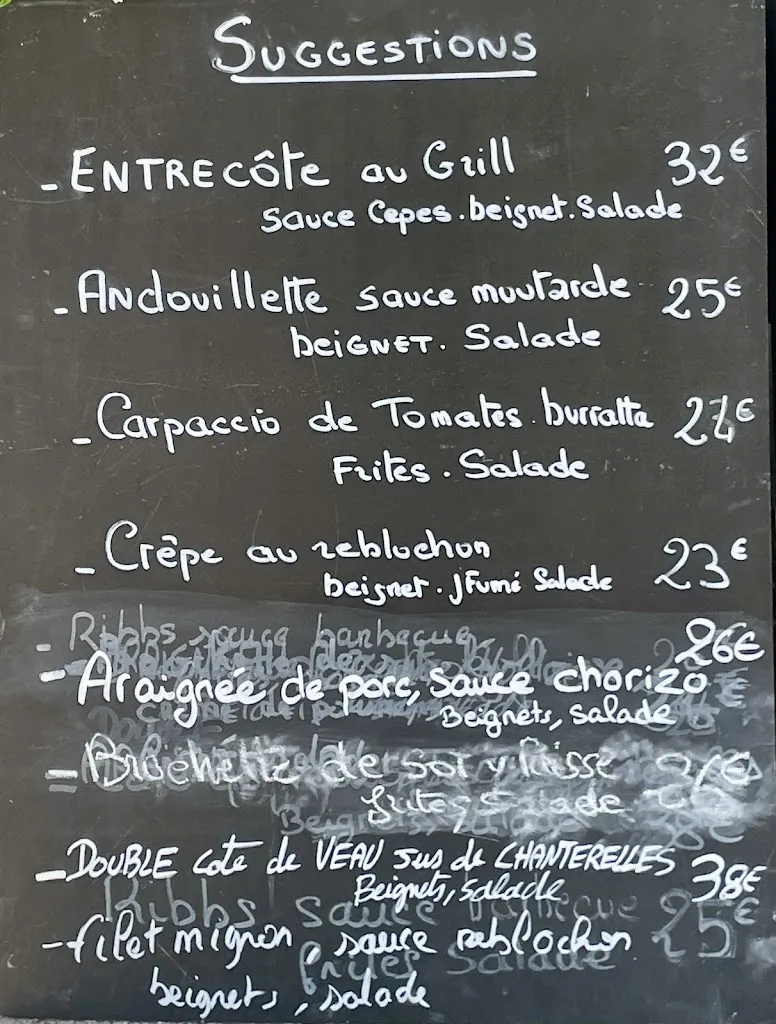 SUGGESTIONS
- ENTRECôte au Grill 32€
Sauce Cepes. beignet. Salade
- Andouillette sauce moutarde 25€
beiGNET. Salade
- Carpaccio de Tomates. burratta €
Frites. Salade
- Crêpe au reblochon 23€
beignet. JFumé Salade
- Ribbs sauce barbecue 26€
- Araignée de porc, sauce chorizo
Beignets, salade
- Brochette de
frites Salade
- DOUBLE cote de VEAU jus de CHANTERELLES 38€
Beignets, salade
Ribbs sauce barbecue 25€
- filet mignon, sauce reblochon
frites Salade
beignets, salade